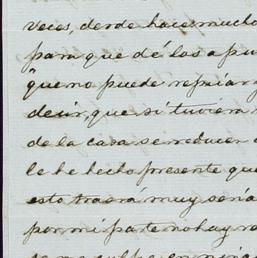 veces, desde hace mucho
para que dé los apu
queno puede repsiar
decir, que si tuviera
de la casa se reducen
le he hecho presente que
esto traerá muy seria
por mi parte no hay